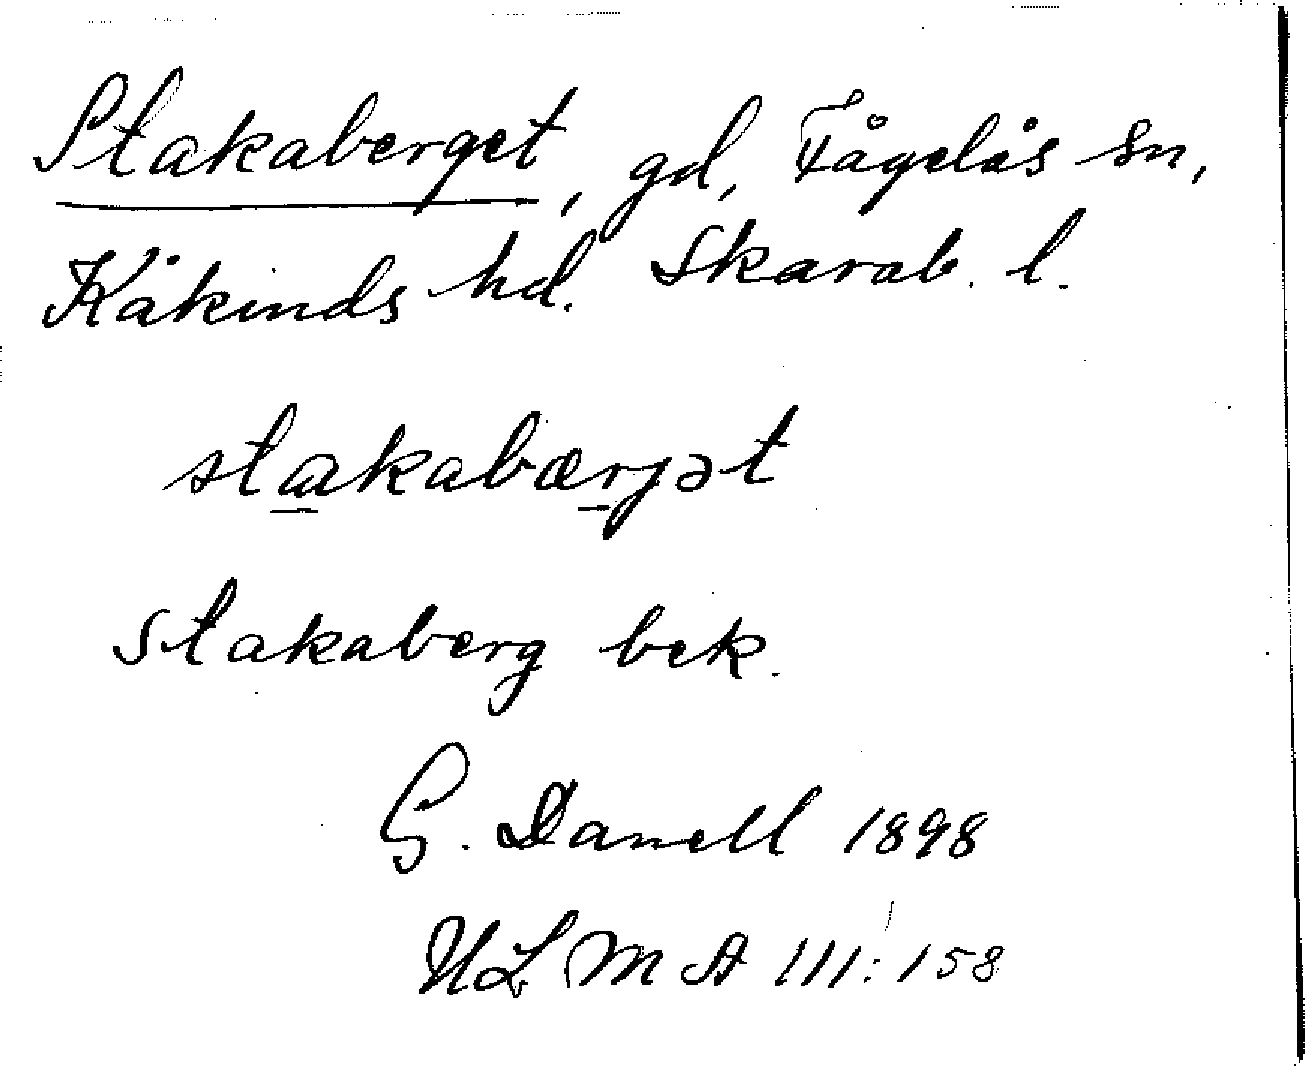 Stakaberget, gd, Fågelås sn,
Kåkinds hd. Skarab. l.
stakabærjət
Stakaberg bek.
G. Danell 1898
ULMA 111:158